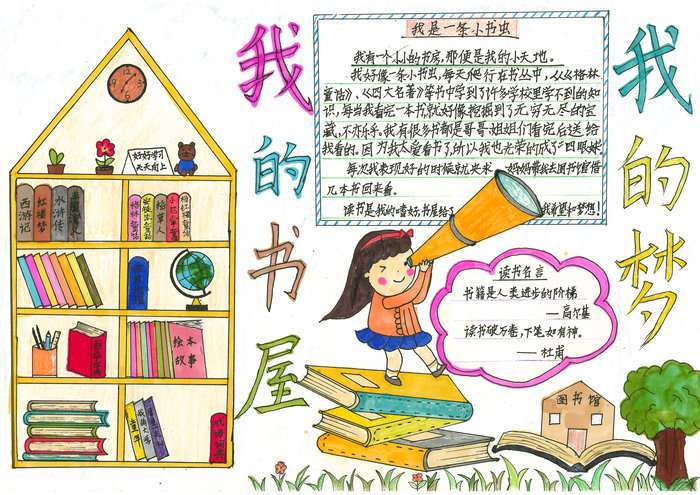 我的书屋
我的梦
我是一条小书虫
我有一个小小的书房,那便是我的小天地。
我好像一条小书虫,每天爬行在书丛中,从《格林
童话》、《四大名著》等书中学到了许多学校里学不到的知
识,每当我看完一本书就好像挖掘到了无穷无尽的宝
藏,不亦乐乎,我有很多书都是哥哥姐姐们看完后送给
我看的。因为我太爱看书了,所以我也光荣的成了"四眼妹
每次我表现好的时候就央求 妈妈带我去图书馆借
几本书回来看。
读书是我的嗜好,书屋给了 我希望和梦想!
读书名言
书籍是人类进步的阶梯
——高尔基
读书破万卷,下笔如有神。
——杜甫
图书馆
好好学习
天天向上
西游记
红楼梦
水浒传
格林童话
稻草人
绘本
故事